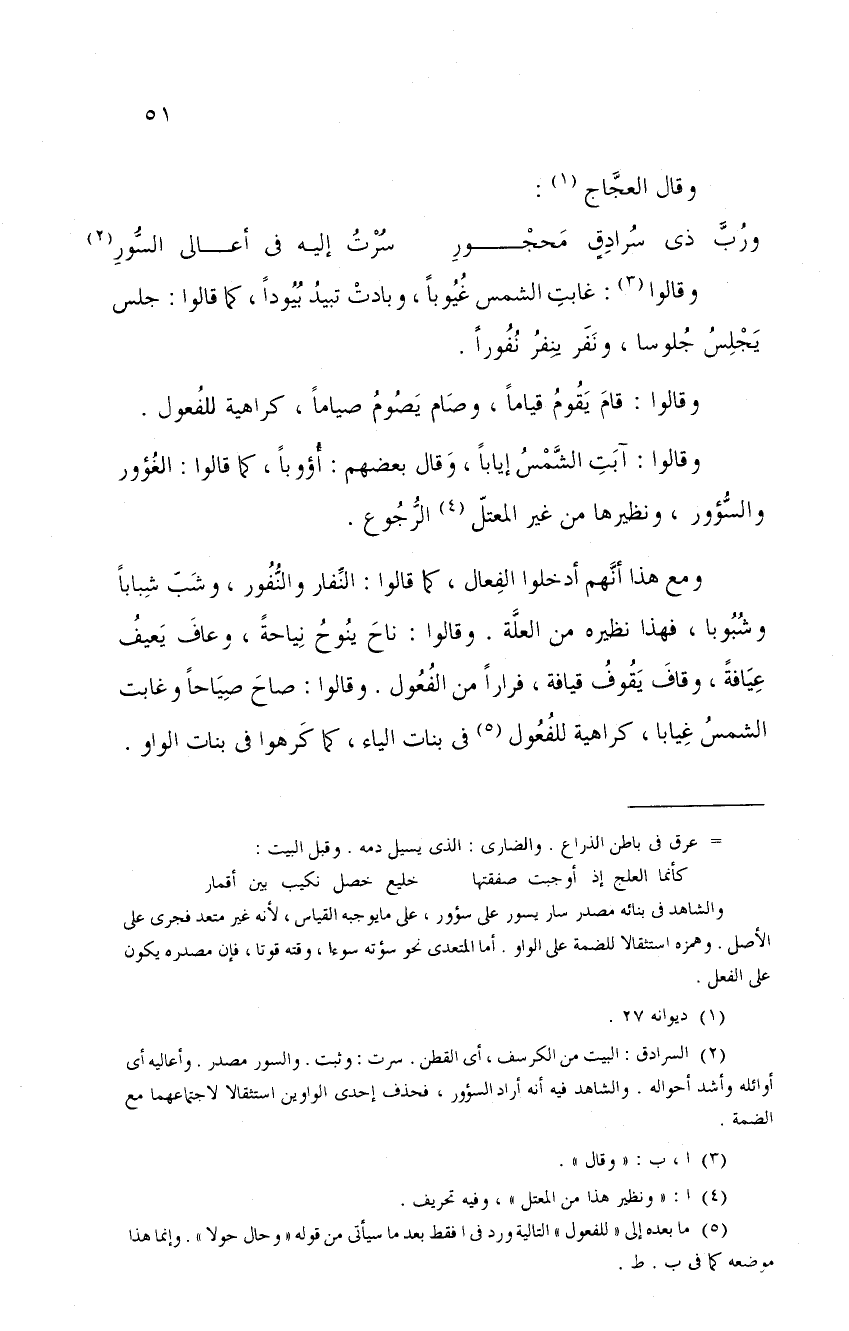 ٥١
وقال العجَّاج (١) :
ورُبَّ ذى سُرادِقٍ مَحجْـــورِ سُرْتُ إليه فى أعـــالى السُّورِ (٢)
وقالوا (٣) : غابتِ الشمس غُيُوباً ، وبادتْ تبيدُ بُيُوداً ، كما قالوا : جلس
يَجْلِسُ جُلوسا ، ونَفَر ينفِرُ نُفُوراً .
وقالوا : قامَ يَقُومُ قياماً ، وصَام يَصُومُ صياماً ، كراهية للفُعول .
وقالوا : آبَتِ الشَّمْسُ إياباً ، وَقال بعضهم : أُؤوباً ، كما قالوا : الغُؤور
والسُّؤور ، ونظيرها من غير المعتلّ (٤) الرُّجُوع .
ومع هذا أنَّهم أدخلوا الفِعال ، كما قالوا : النِّفار والنُّفُور ، وشَبّ شِباباً
وشُبُوبا ، فهذا نظيره من العلَّة . وقالوا : ناحَ يَنُوحُ نِياحةً ، وعافَ يَعيفُ
عِيَافةً ، وقافَ يَقُوفُ قيافة ، فراراً من الفُعُول . وقالوا : صاحَ صِيَاحاً وغابت
الشمسُ غِيابا ، كراهية للفُعُول (٥) فى بنات الياء ، كما كَرهوا فى بنات الواو .
= عرق فى باطن الذراع . والضارى : الذى يسيل دمه . وقبل البيت :
كأنما العلج إذ أوجبت صفقتها خليع خصل نكيب بين أقمار
والشاهد فى بنائه مصدر سار يسور على سؤور ، على مايوجبه القياس ، لأنه غير متعد فجرى على
الأصل . وهمزه استثقالا للضمة على الواو . أما المتعدى نحو سؤته سوءا ، وقته قوتا ، فإن مصدره يكون
على الفعل .
(١) ديوانه ٢٧ .
(٢) السرادق : البيت من الكرسف ، أى القطن . سرت : وثبت . والسور مصدر . وأعاليه أى
أوائله وأشد أحواله . والشاهد فيه أنه أراد السؤور ، فحذف إحدى الواوين استثقالا لاجتماعهما مع
الضمة .
(٣) ا ، ب : « وقال » .
(٤) ا : « ونظير هذا من المعتل » ، وفيه تحريف .
(٥) ما بعده إلى « للفعول » التالية ورد فى ا فقط بعد ما سيأتى من قوله « وحال حولا » . وإنما هذا
موضعه كما فى ب . ط .